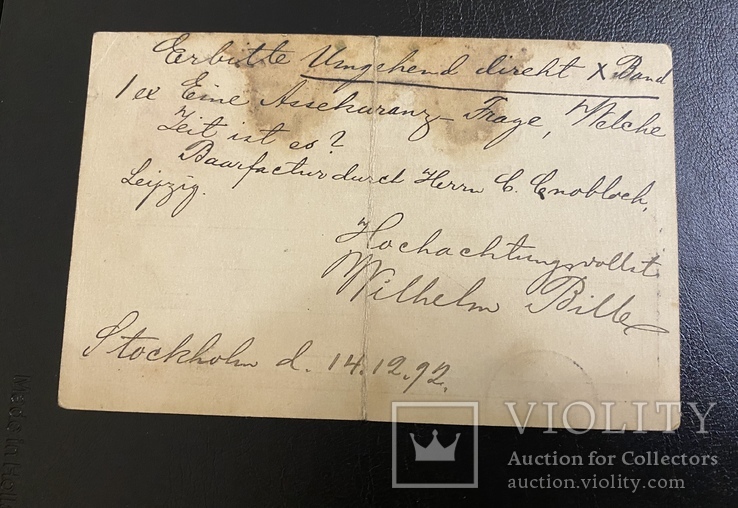 Erbitte Umgehend direkt X Band
1 ex Eine Assekuranz-Frage, Welche
Zeit ist es?
Baarfactur durch Herrn C. Cnobloch,
Leipzig.
Hochachtungsvollst
Wilhelm Bille
Stockholm d. 14.12.92.
VIOLITY
Auction for Collectors
auction.violity.com